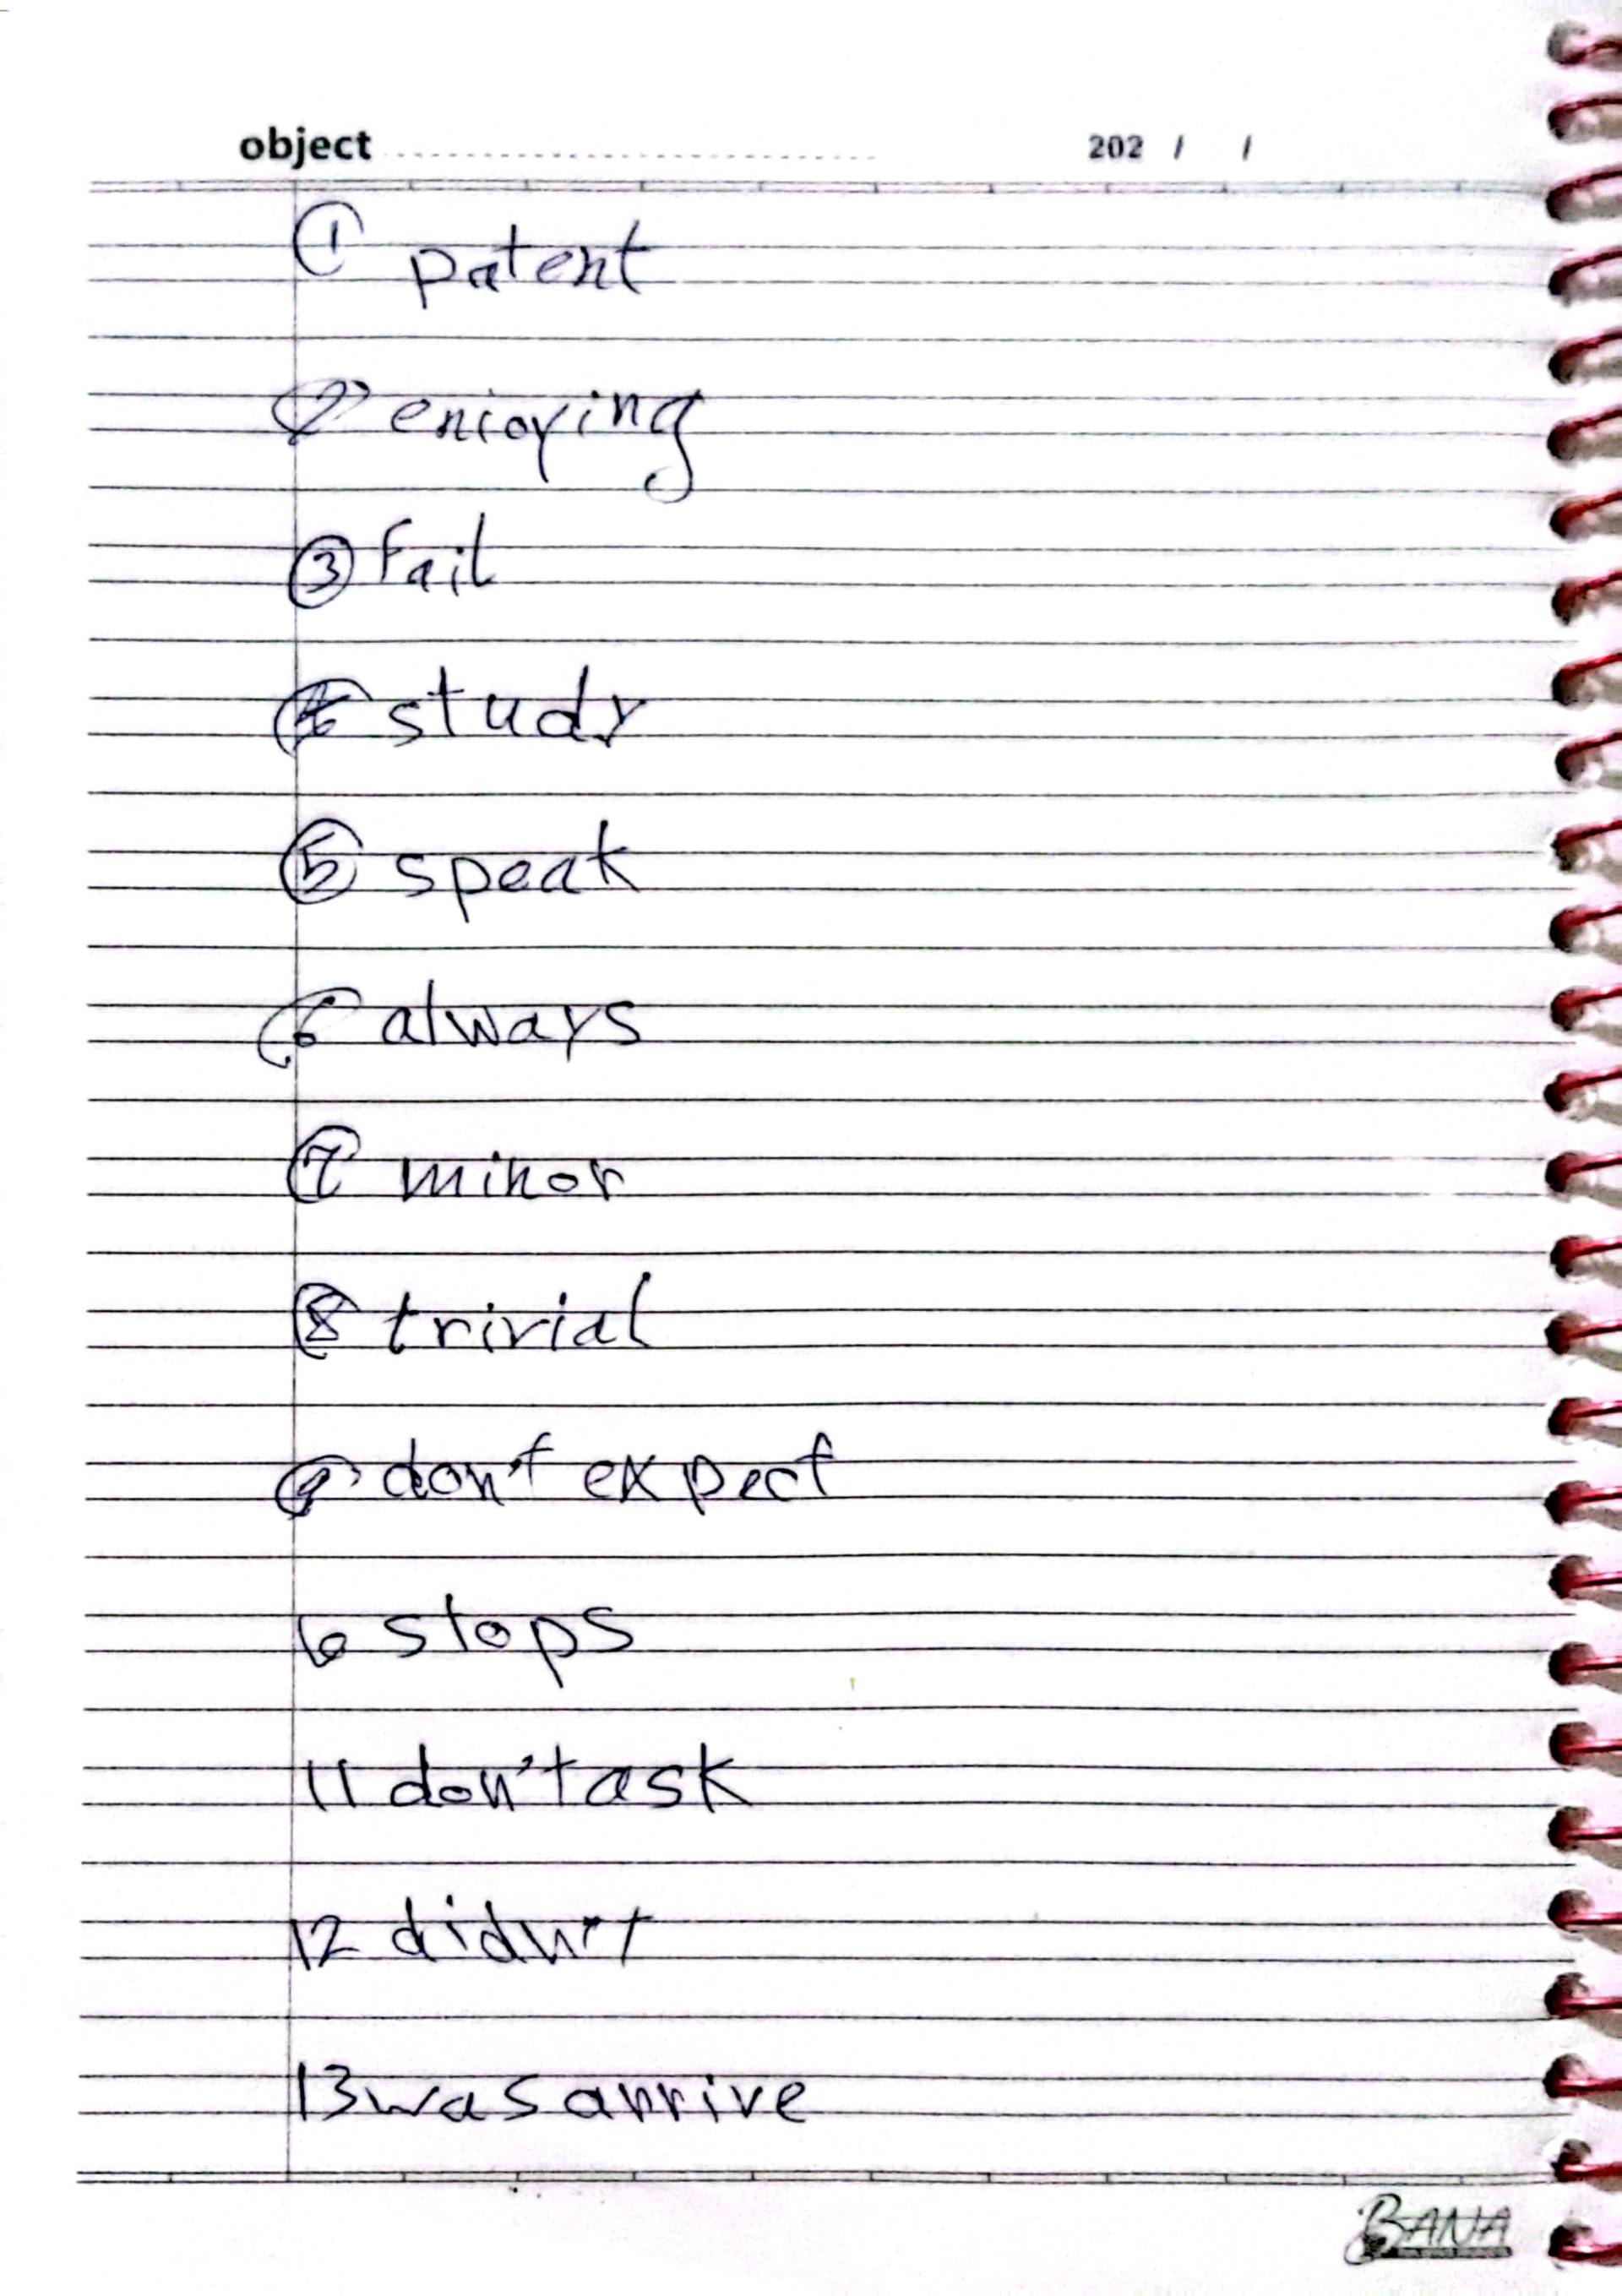 object 202 / /
① patent
② enjoying
③ Fail
④ study
⑤ speak
⑥ always
⑦ minor
⑧ trivial
⑨ don't expect
10 stops
11 don't ask
12 didn't
13 was arrive
BANA